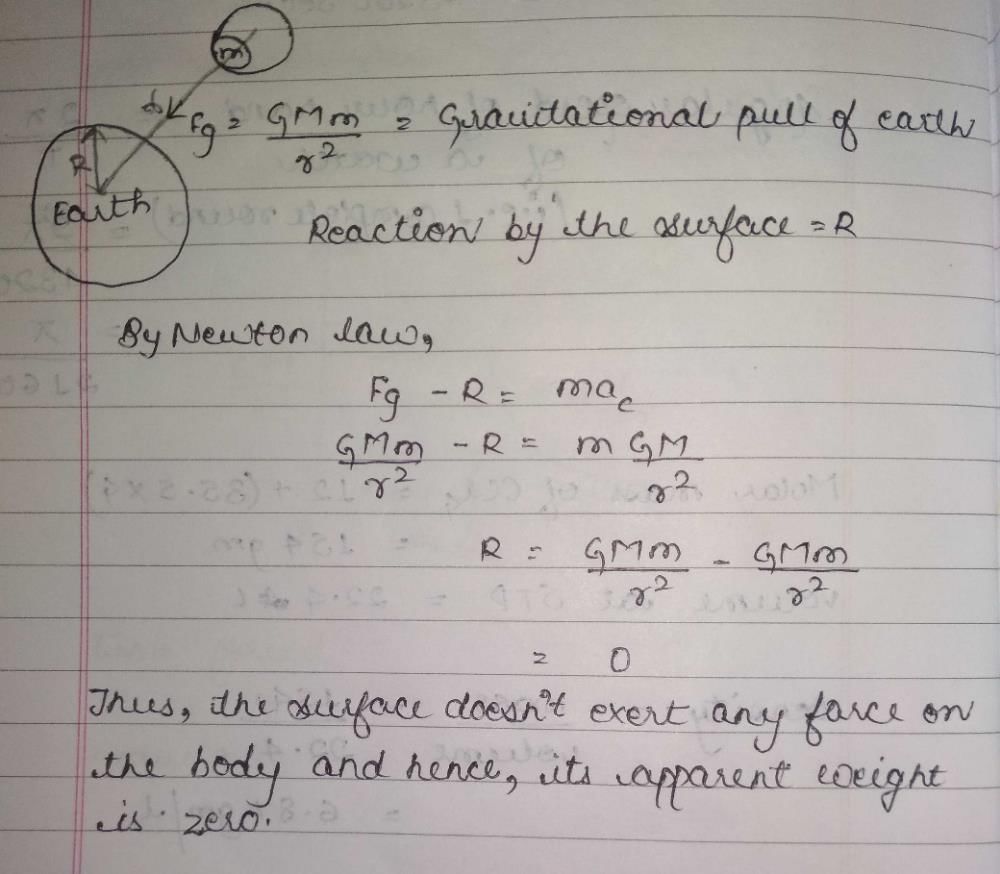 m
r
Fg = GMm/r² = Gravitational pull of earth
R
Earth
Reaction by the surface = R
By Newton law,
Fg - R = mac
GMm/r² - R = m GM/r²
R = GMm/r² - GMm/r²
= 0
Thus, the surface doesn't exert any force on
the body and hence, its apparent weight
is zero.